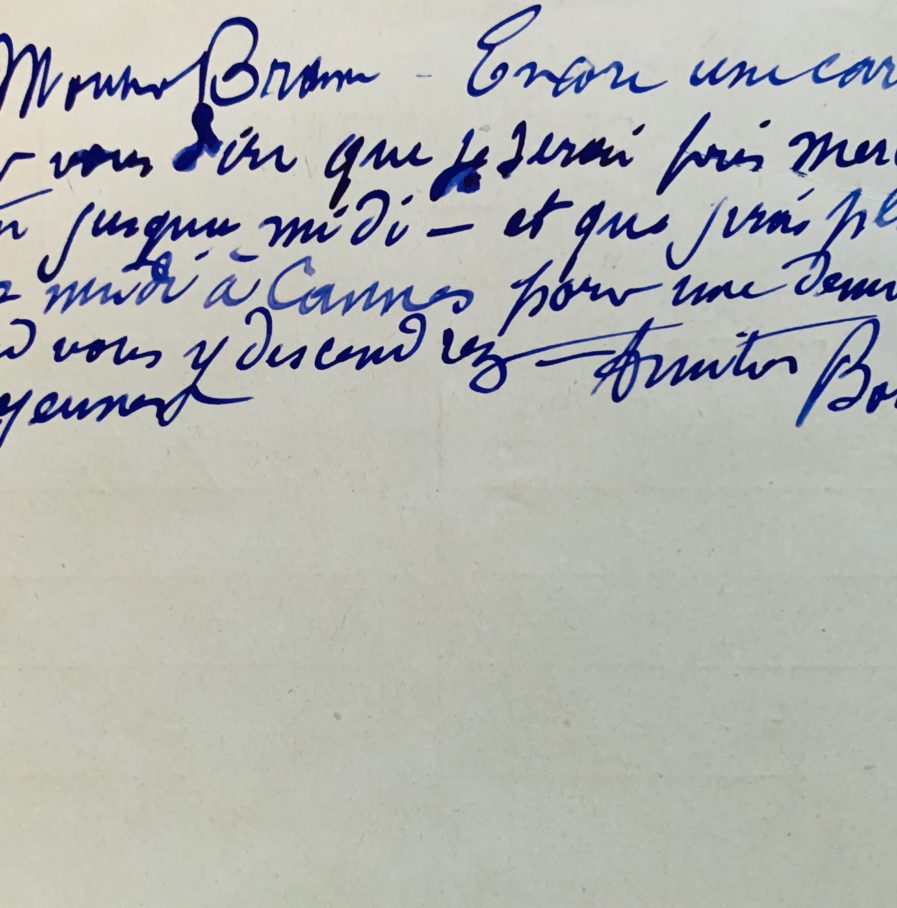 Monsieur Braun - Encore une car
vous dire que je serai pris mer
jusqu'a midi - et que j'irais pl
midi à Cannes pour une Dem
vous y descendrez - Amitiés Bo